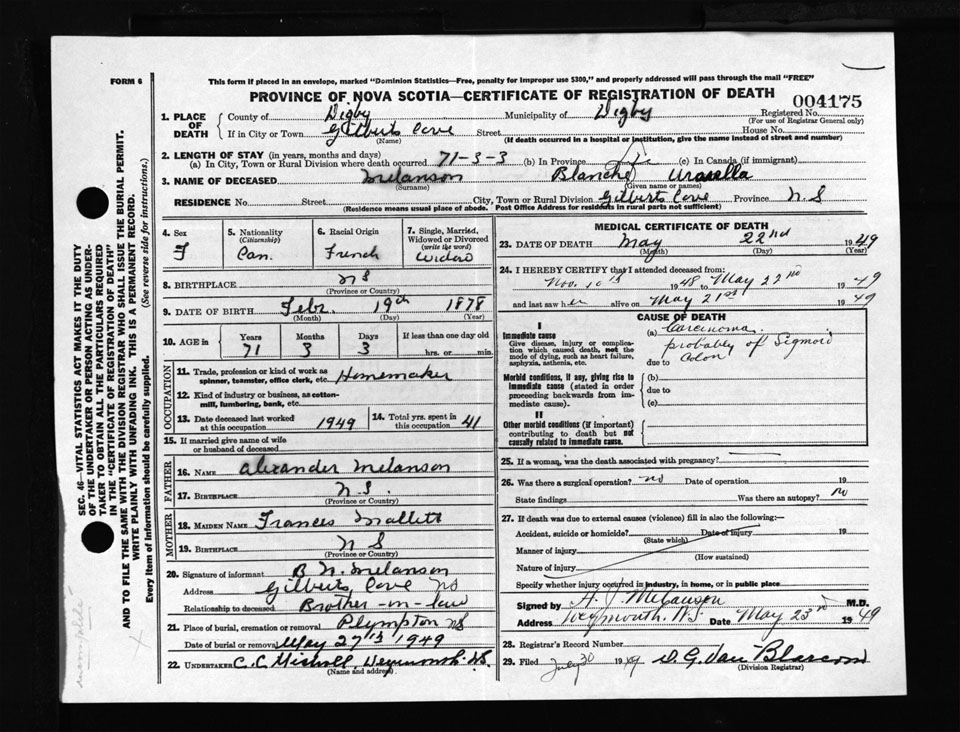 FORM 6
This form if placed in an envelope, marked "Dominion Statistics—Free, penalty for improper use $300," and properly addressed will pass through the mail "FREE"
PROVINCE OF NOVA SCOTIA—CERTIFICATE OF REGISTRATION OF DEATH
004175
1. PLACE OF DEATH
County of Digby Municipality of Digby Registered No.
(For use of Registrar General only)
If in City or Town Gilberts Cove Street House No.
(Name) (If death occurred in a hospital or institution, give the name instead of street and number)
2. LENGTH OF STAY (in years, months and days)
(a) In City, Town or Rural Division where death occurred 71-3-3 (b) In Province (c) In Canada (if immigrant)
3. NAME OF DECEASED Melanson Blanche
(Surname) (Given name or names)
RESIDENCE No. Street City, Town or Rural Division Gilberts Cove Province N.S
(Residence means usual place of abode. Post Office Address for residents in rural parts not sufficient)
4. Sex F
5. Nationality (Citizenship) Can.
6. Racial Origin French
7. Single, Married, Widowed or Divorced (write the word) Widow
8. BIRTHPLACE N S
(Province or Country)
9. DATE OF BIRTH Febr. 19th 1878
(Month) (Day) (Year)
10. AGE in Years Months Days If less than one day
71 3 3 hrs. or min.
OCCUPATION
11. Trade, profession or kind of work as spinner, teamster, office clerk, etc. Homemaker
12. Kind of industry or business, as cotton-mill, lumbering, bank, etc.
13. Date deceased last worked at this occupation 1949
14. Total yrs. spent in this occupation 41
15. If married give name of wife or husband of deceased
FATHER
16. NAME Alexander Melanson
17. BIRTHPLACE N.S.
(Province or Country)
MOTHER
18. MAIDEN NAME Frances Mallett
19. BIRTHPLACE N S
(Province or Country)
20. Signature of informant B N. Melanson
Address Gilberts Cove NS
Relationship to deceased Brother-in-law
21. Place of burial, cremation or removal Plympton NS
Date of burial or removal May 27th 1949
22. UNDERTAKER C. C. Weymouth. N.S.
(Name and address)
MEDICAL CERTIFICATE OF DEATH
23. DATE OF DEATH May 22nd 1949
(Month) (Day) (Year)
24. I HEREBY CERTIFY that I attended deceased from:
Nov. 10th 1948 to May 22nd 1949
and last saw her alive on May 21st 1949
CAUSE OF DEATH
I
Immediate cause
Give disease, injury or complication which caused death, not the mode of dying, such as heart failure, asphyxia, asthenia, etc.
(a) Carcinoma.
probably of Sigmoid
due to Colon
Morbid conditions, if any, giving rise to immediate cause (stated in order proceeding backwards from immediate cause).
(b)
due to
(c)
II
Other morbid conditions (if important) contributing to death but not causally related to immediate cause.
25. If a woman, was the death associated with pregnancy?
26. Was there a surgical operation? no Date of operation 19
State findings Was there an autopsy? no
27. If death was due to external causes (violence) fill in also the following:—
Accident, suicide or homicide? Date of injury 19
(State which)
Manner of injury
(How sustained)
Nature of injury
Specify whether injury occurred in industry, in home, or in public place
Signed by M.D.
Address Weymouth. N.S Date May 23rd 1949
28. Registrar's Record Number
29. Filed July 30 1949 D. G. Van Blarcom
(Division Registrar)
SEC. 46—VITAL STATISTICS ACT MAKES IT THE DUTY
OF THE UNDERTAKER OR PERSON ACTING AS UNDERTAKER
TO OBTAIN ALL THE PARTICULARS REQUIRED
IN THE "CERTIFICATE OF REGISTRATION OF DEATH"
AND TO FILE THE SAME WITH THE DIVISION REGISTRAR WHO SHALL ISSUE THE BURIAL PERMIT.
WRITE PLAINLY WITH UNFADING INK. THIS IS A PERMANENT RECORD.
Every item of information should be carefully supplied. (See reverse side for instructions.)